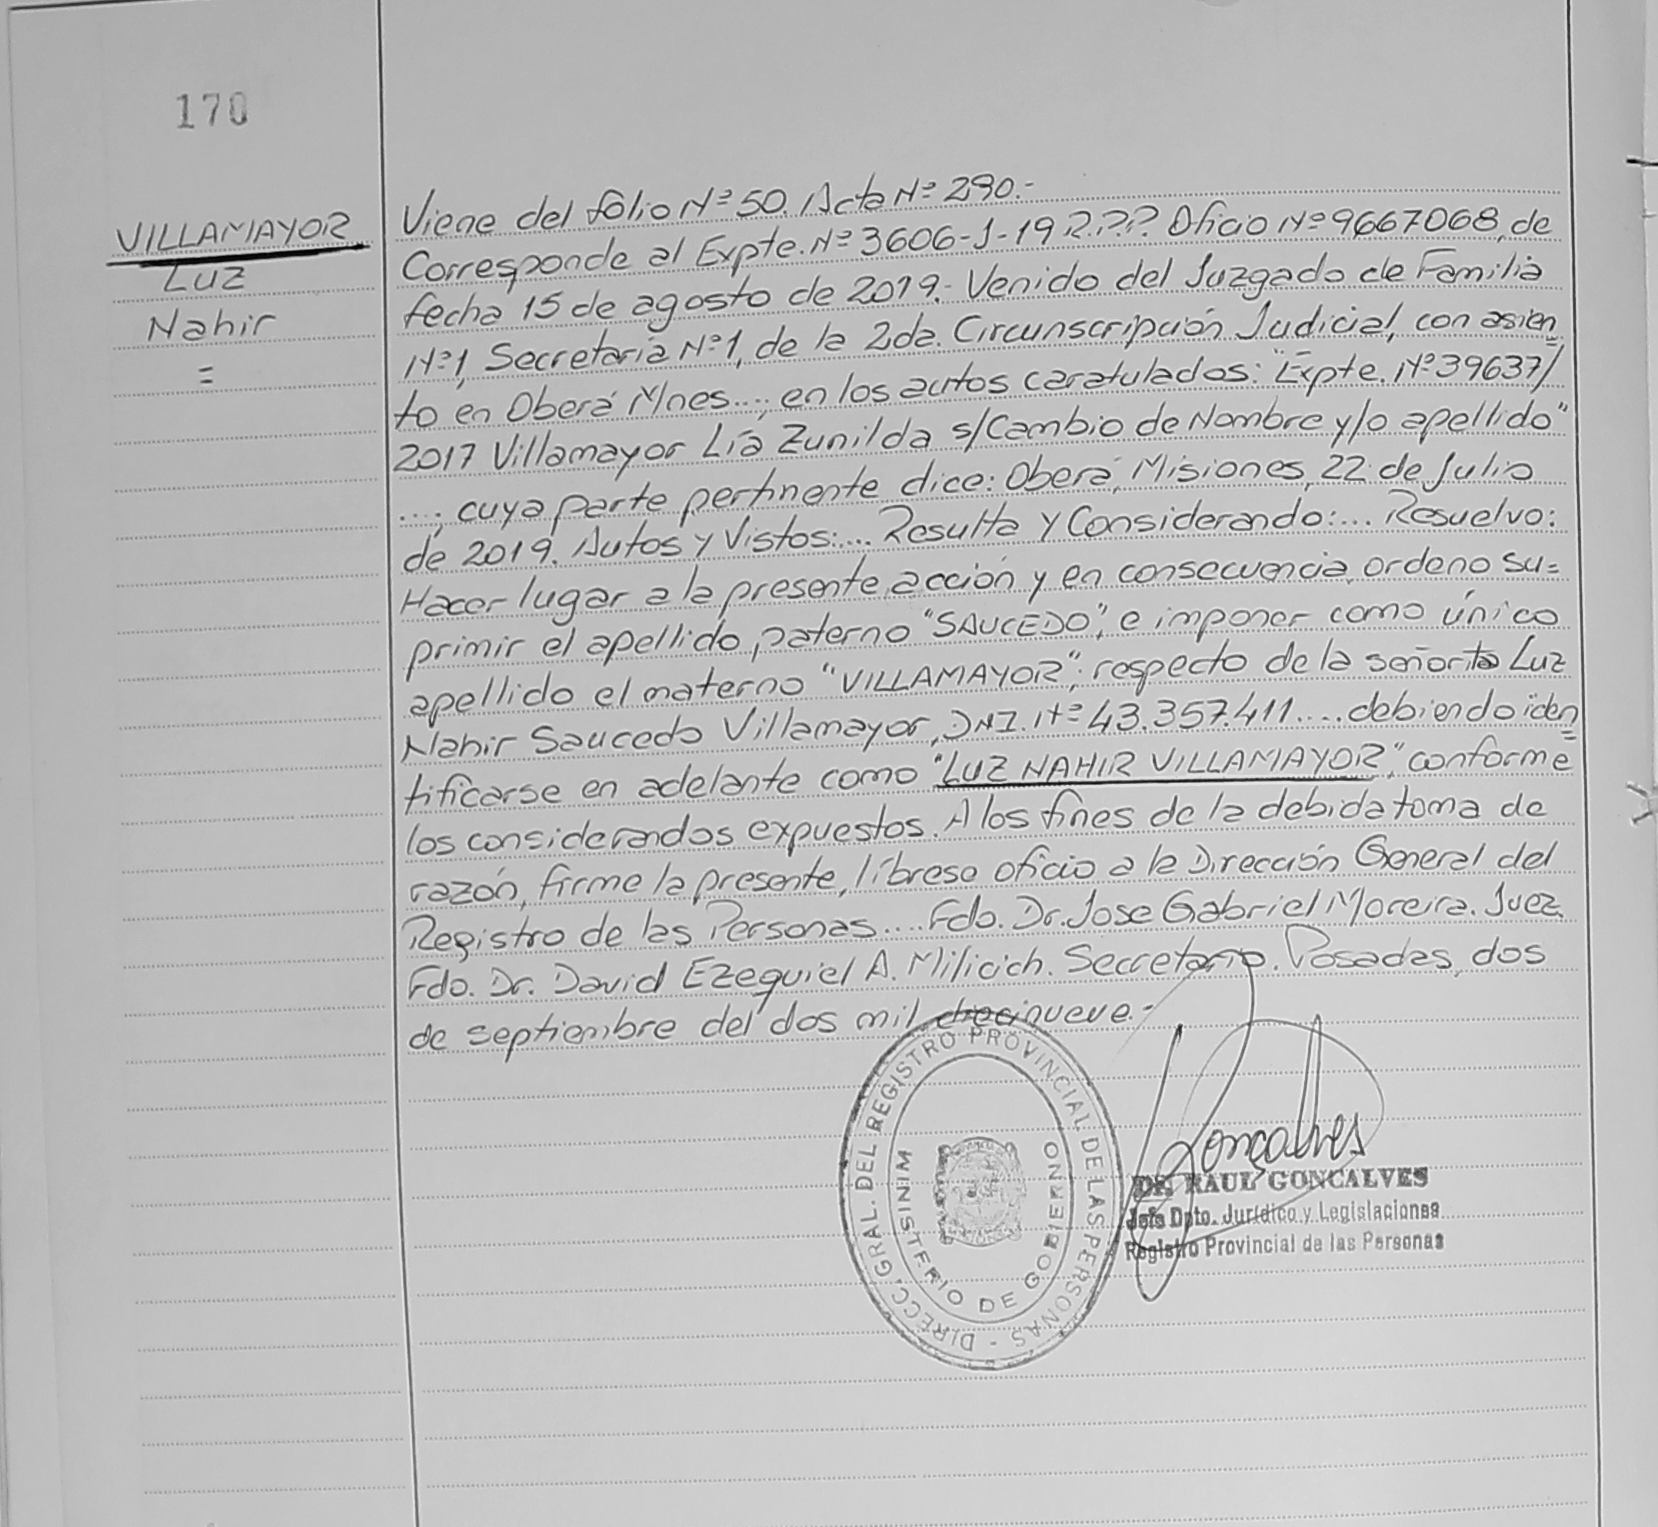 170
VILLAMAYOR
Luz
Nahir
=
Viene del folio Nº 50. Acta Nº 290.-
Corresponde al Expte. Nº 3606-J-19 R.P.P. Oficio Nº 9667068, de
fecha 15 de agosto de 2019.- Venido del Juzgado de Familia
Nº1, Secretaría Nº1, de la 2da. Circunscripción Judicial, con asien=
to en Oberá Mnes...., en los autos caratulados: "Expte. Nº 39637/
2017 Villamayor Lía Zunilda s/Cambio de Nombre y/o apellido"
...; cuya parte pertinente dice: Oberá, Misiones, 22 de Julio
de 2019. Autos y Vistos:... Resulta y Considerando:... Resuelvo:
Hacer lugar a la presente acción y en consecuencia, ordeno su=
primir el apellido paterno "SAUCEDO", e imponer como único
apellido el materno "VILLAMAYOR"; respecto de la señorita Luz
Nahir Saucedo Villamayor, DNI. Nº 43.357.411.... debiendo iden=
tificarse en adelante como "LUZ NAHIR VILLAMAYOR", conforme
los considerandos expuestos. A los fines de la debida toma de
razón, firme la presente, líbrese oficio a la Dirección General del
Registro de las Personas.... Fdo. Dr. Jose Gabriel Moreira. Juez.
Fdo. Dr. David Ezequiel A. Milicich. Secretario. Posadas, dos
de septiembre del dos mil diecinueve.-
DIRECC. GRAL. DEL REGISTRO PROVINCIAL DE LAS PERSONAS -
MINISTERIO DE GOBIERNO
Goncalves
DR. RAUL GONCALVES
Jefe Dpto. Jurídico y Legislaciones
Registro Provincial de las Personas